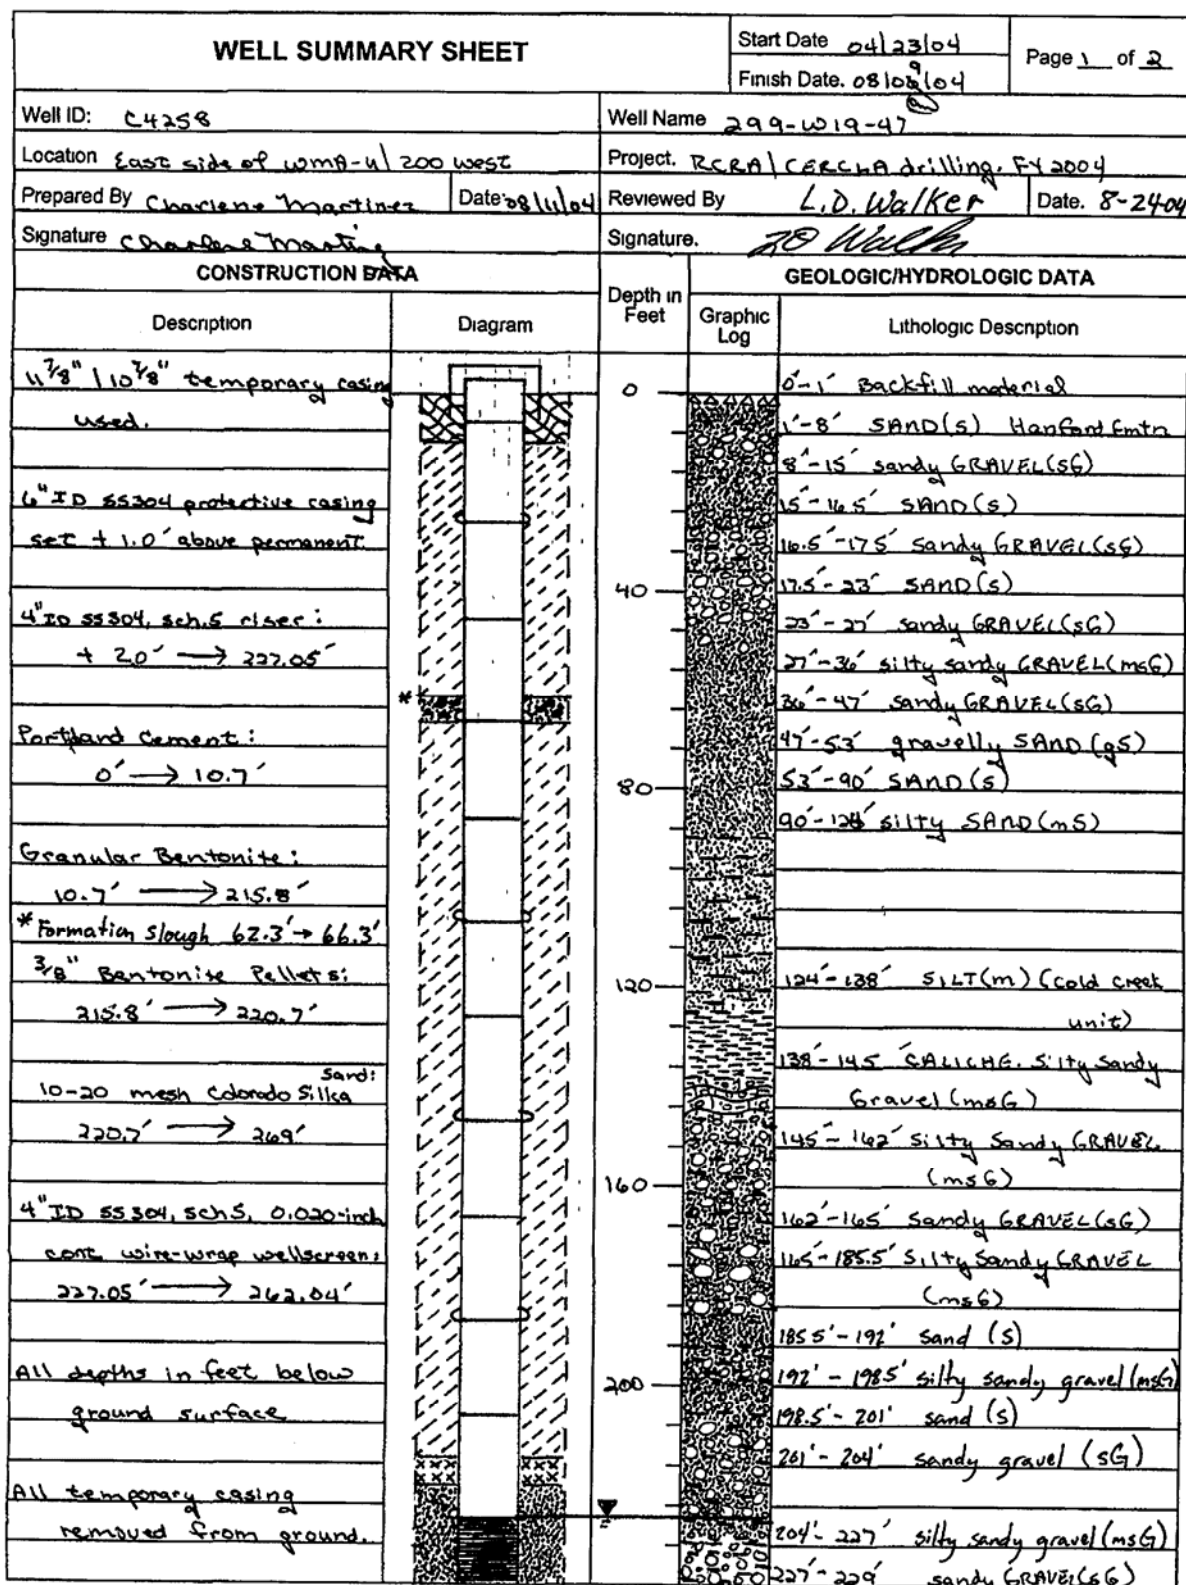 WELL SUMMARY SHEET
Start Date 04/23/04
Finish Date. 08/09/04
Page 1 of 2
Well ID: C4258
Well Name 299-W19-47
Location East side of WMA-U/200 West
Project. RCRA/CERCLA drilling, FY 2004
Prepared By Charlene Martinez
Date 08/11/04
Reviewed By L.D. Walker
Date. 8-24-04
Signature Charlene Martinez
Signature. LD Walker
CONSTRUCTION DATA
GEOLOGIC/HYDROLOGIC DATA
Description
Diagram
Depth in
Feet
Graphic
Log
Lithologic Description
11 7/8" / 10 7/8" temporary casing
used.
6" ID SS304 protective casing
set + 1.0' above permanent
4" ID SS304, sch.5 riser:
+ 2.0' → 227.05'
Portland Cement:
0' → 10.7'
Granular Bentonite:
10.7' → 215.8'
* Formation Slough 62.3' → 66.3'
3/8" Bentonite Pellets:
215.8' → 220.7'
Sand:
10-20 mesh Colorado Silica
220.7' → 269'
4" ID SS304, sch5, 0.020-inch
cont. wire-wrap wellscreen:
227.05' → 262.04'
All depths in feet below
ground surface
All temporary casing
removed from ground.
*
0
40
80
120
160
200
0'-1' Backfill material
1'-8' SAND(S) Hanford Fmtn
8'-15' sandy GRAVEL(sG)
15'-16.5' SAND(S)
16.5'-17.5' sandy GRAVEL(sG)
17.5'-23' SAND(S)
23'-27' sandy GRAVEL(sG)
27'-36' silty sandy GRAVEL(msG)
36'-47' sandy GRAVEL(sG)
47'-53' gravelly SAND(gS)
53'-90' SAND(S)
90'-124' silty SAND(mS)
124'-138' SILT(m) (Cold Creek
unit)
138'-145' CALICHE. Silty Sandy
Gravel (msG)
145'-162' Silty Sandy GRAVEL
(msG)
162'-165' Sandy GRAVEL(sG)
165'-185.5' Silty Sandy GRAVEL
(msG)
185.5'-192' sand (S)
192'-198.5' silty sandy gravel (msG)
198.5'-201' sand (S)
201'-204' sandy gravel (sG)
204'-227' silty sandy gravel (msG)
227'-229' sandy GRAVEL(sG)